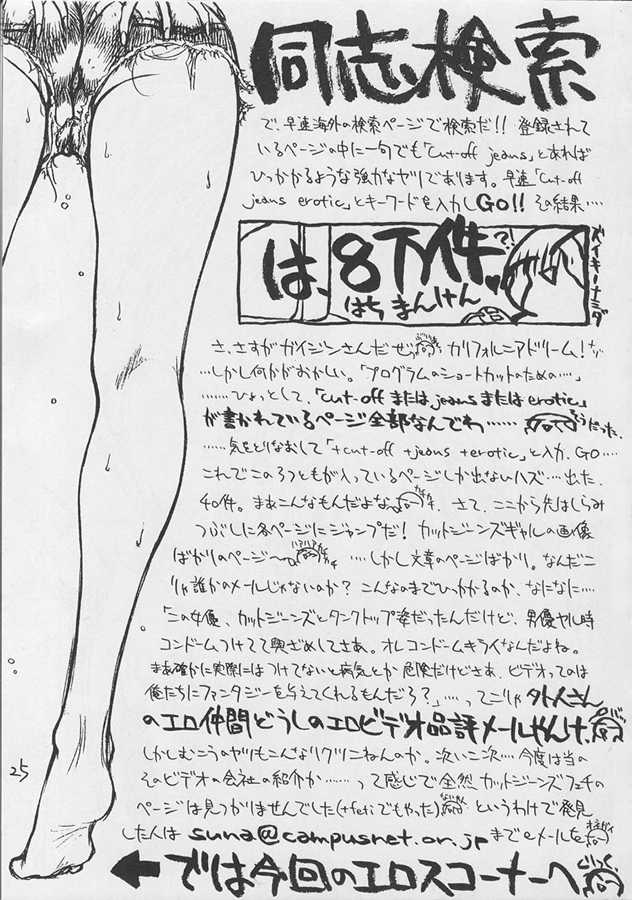 同志検索
で、早速海外の検索ページで検索だ!! 登録されて
いるページの中に一句でも「cut-off jeans」とあれば
ひっかかるような強力なヤツであります。早速「cut-off
jeans erotic」とキーワードを入力しGO!! その結果‥‥
は、8万件?!
はちまんけん
さ、さすがガイジンさんだぜ カリフォルニアドリーム!
‥‥しかし何かがおかしい。「プログラムのショートカットのための‥‥」
‥‥‥ひょっとして、「cut-off または jeans または erotic」
が書かれているページ全部なんでわ‥‥‥ そうだった。
‥‥‥気をとりなおして「+cut-off +jeans +erotic」と入力、GO‥‥
これでこの3つともが入っているページしか出ないハズ‥‥出た。
40件。まあこんなもんだよな 。さて、ここから先はしらみ
つぶしに各ページにジャンプだ! カットジーンズギャルの画像
ばかりのページ〜 ‥‥しかし文章のページばかり。なんだこ
りゃ誰かのメールじゃないのか? こんなのまでひっかかるのか、なになに‥‥
「この女優、カットジーンズとタンクトップ姿だったんだけど、男優ヤル時
コンドームつけてて興ざめしてさあ。オレコンドームキライなんだよね。
まあ確かに実際にはつけてないと病気とか危険だけどさあ、ビデオってのは
俺たちにファンタジーを与えてくれるもんだろ?」‥‥ってこりゃ外人さん
のエロ仲間どうしのエロビデオ品評メールやんけ。
しかしむこうのヤツもこんなノリなんか。次いこ次‥‥今度は当の
そのビデオの会社の紹介か‥‥‥って感じで全然カットジーンズフェチの
ページは見つかりませんでした(+fetiでもやった) というわけで発見
した人は suna@campusnet.or.jp までeメールを
←では今回のエロスコーナーへ
25